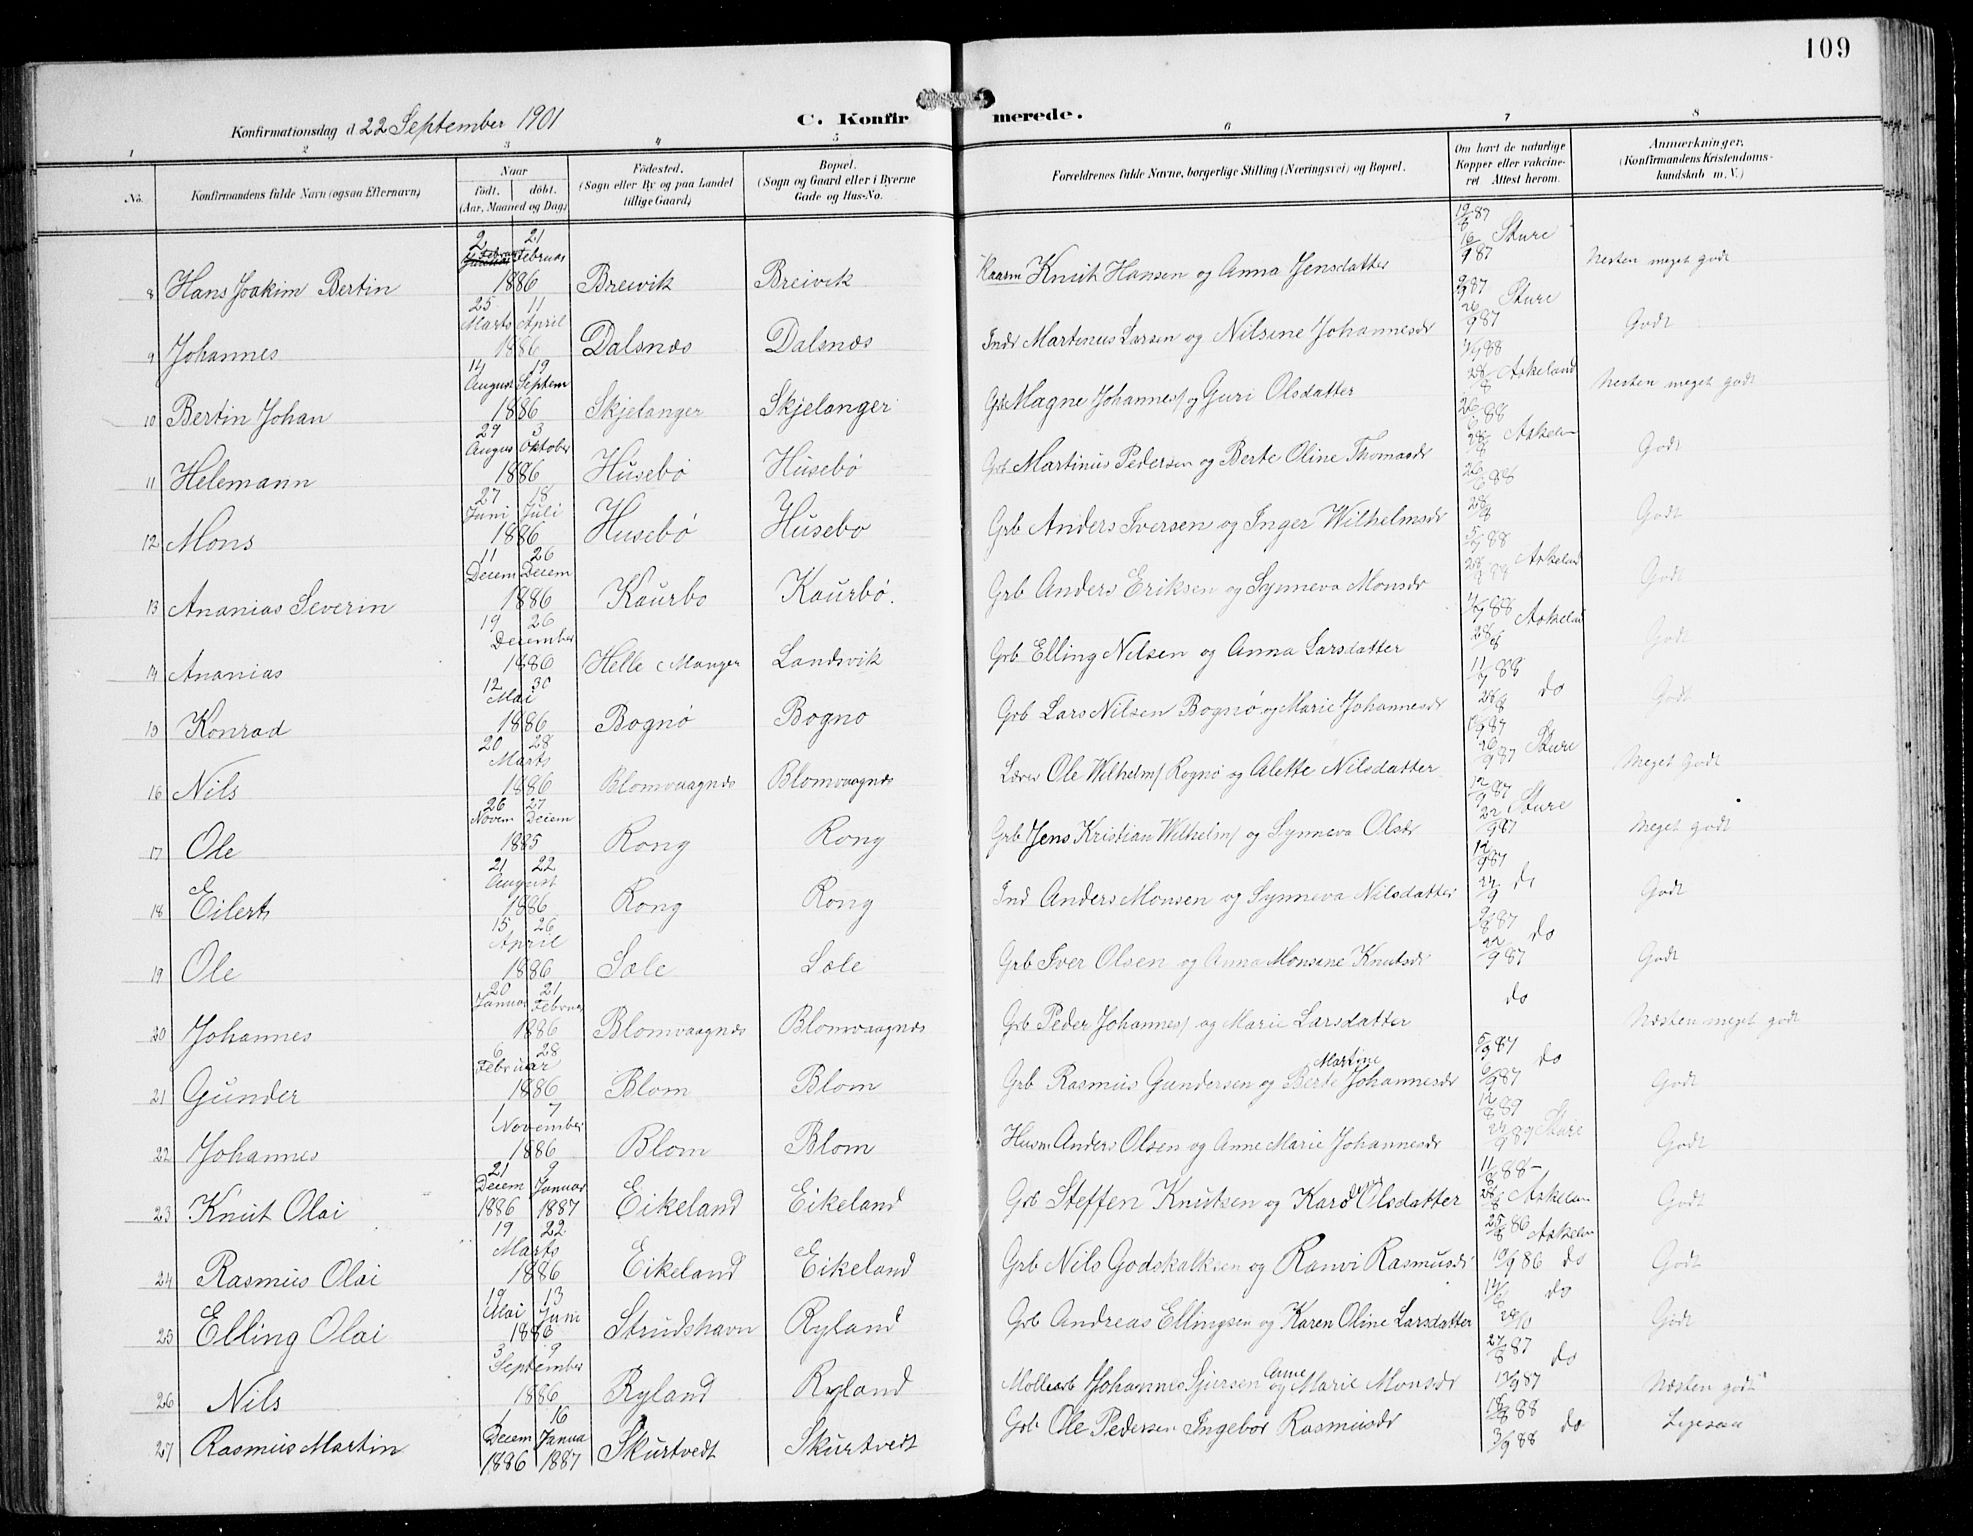 109
Konfirmationsdag d 22 September 1901
C. Konfirmerede.
1 2 3 4 5 6 7 8
No. Konfirmandens fulde Navn (ogsaa Efternavn) Naar født. døbt. (Aar, Maaned og Dag) Fødested. (Sogn eller By og paa Landet tillige Gaard) Bopæl. (Sogn og Gaard eller i Byerne Gade og Hus-No. Forældrenes fulde Navne, borgerlige Stilling (Næringsvei) og Bopæl. Om havt de naturlige Kopper eller vakcineret Attest herom. Anmærkninger. (Konfirmandens Kristendomskundskab m. V.)
8 Hans Joakim Bertin 2 Februar 21 Februar 1886 Breivik Breivik Knut Hansen og Anna Jensdatter 16/9 87 Sture Nesten meget godt
9 Johannes 25 Marts 11 April 1886 Dalsnæs Dalsnæs Indr Martinus Larsen og Nilsine Johannesdr 26/9 87 Sture Godt
10 Bertin Johan 14 August 19 Septem 1886 Skjelanger Skjelanger Grb Magne Johannes/ og Guri Olsdatter 28/8 88 Askeland Nesten meget godt
11 Helemann 29 Augus 3 Oktober 1886 Husebø Husebø Grb Martinus Pedersen og Berte Oline Thomasdr 28/8 88 Askelan Godt
12 Mons 27 Juni 18 Juli 1886 Husebø Husebo Grb Anders Iversen og Inger Wilhelmsdr 26/6 88 28/8 Godt
13 Ananias Severin 11 Decem 26 Decem 1886 Kaurbo Kaurbø. Grb Anders Eriksen og Synneva Monsdr 88 28/8 88 Askeland Godt
14 Ananias 19 26 December 1886 Helle Manger Landsvik Grb Elling Nilsen og Anna Larsdatter 88 28/8 Askelan Godt
15 Konrad 12 30 Mai 1886 Bognø Bogno Grb Lars Nilsen Bognø og Marie Johannesdr 88 28/8 do Godt
16 Nils 20 28 Marts 1886 Blomvaagnæs Blomvaagnæs Lærer Ole Wilhelm/ Rognø og Alette Nilsdatter 87 26/9 87 Sture Meget Godt
17 Ole 26 Novem 27 Decem 1885 Rong Rong Grb Jens Kristian Wilhelm/ og Synneva Olsdr 12/9 87 22/9 87 Sture Meget godt
18 Eilert 21 22 August 1886 Rong Rong Ind Anders Monsen og Synneva Nilsdatter 87 do Godt
19 Ole 15 26 April 1886 Sæle Sæle Grb Iver Olsen og Anna Monsine Knutsdr 87 22/9 87 do Godt
20 Johannes 20 Januar 21 Februar 1886 Blomvaagnæs Blomvaagnæs Grb Peder Johannes/ og Marie Larsdatter do Næsten meget godt
21 Gunder 6 28 Februar 1886 Blom Blom Grb Rasmus Gundersen og Berte Martine Johannesdr 87 87 do Godt
22 Johannes 1 7 November 1886 Blom Blom Husm Anders Olsen og Anne Marie Johannesdr 12/8 89 Sture Godt
23 Knut Olai 21 Decem 9 Januar 1886 1887 Eikeland Eikeland Grb Steffen Knutsen og Karo Olsdatter 11/8 88 28/8 Askelan Godt
24 Rasmus Olai 19 22 Marts 1886 Eikeland Eikeland Grb Nils Godskalksen og Ranvi Rasmusdr 25/8 86 Askelan 10/9 86 do Godt
25 Elling Olai 19 Mai 13 Juni 1886 Strudshavn Ryland Grb Andreas Ellingsen og Karen Oline Larsdatter do Godt
26 Nils 3 9 September 1886 Ryland Ryland Mollearb Johannes Sjursen og Anne Marie Monsdr 27/8 87 87 do Næsten godt
27 Rasmus Martin 1 Decem 16 Janua 1886 1887 Skurtvedt Skurtvedt Grb Ole Pedersen Ingebor Rasmusdr 18/8 88 3/9 88 do Ligesaa